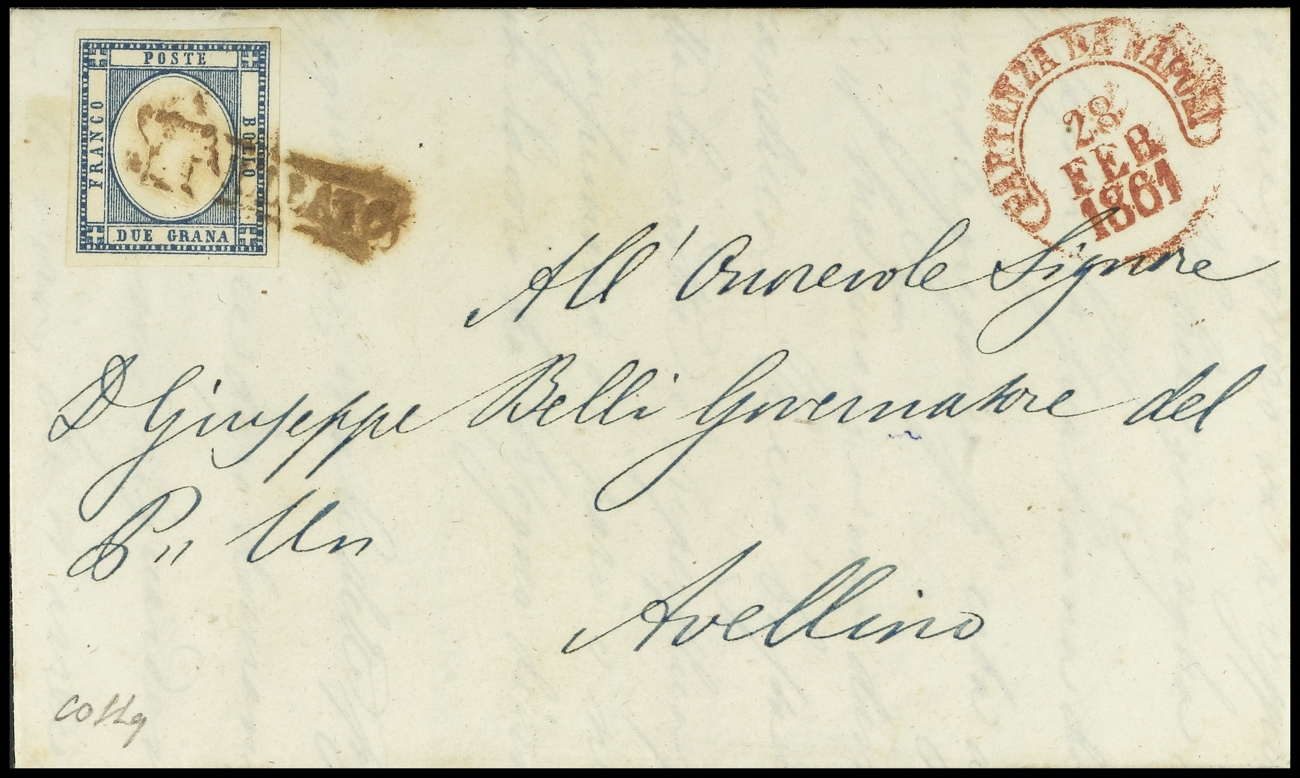 POSTE
FRANCO
BOLLO
DUE GRANA
PARTENZA DA NAPOLI
28
FEB
1861
All' Onorevole Signore
D Giuseppe Belli Governatore del
P,, Un
Avellino